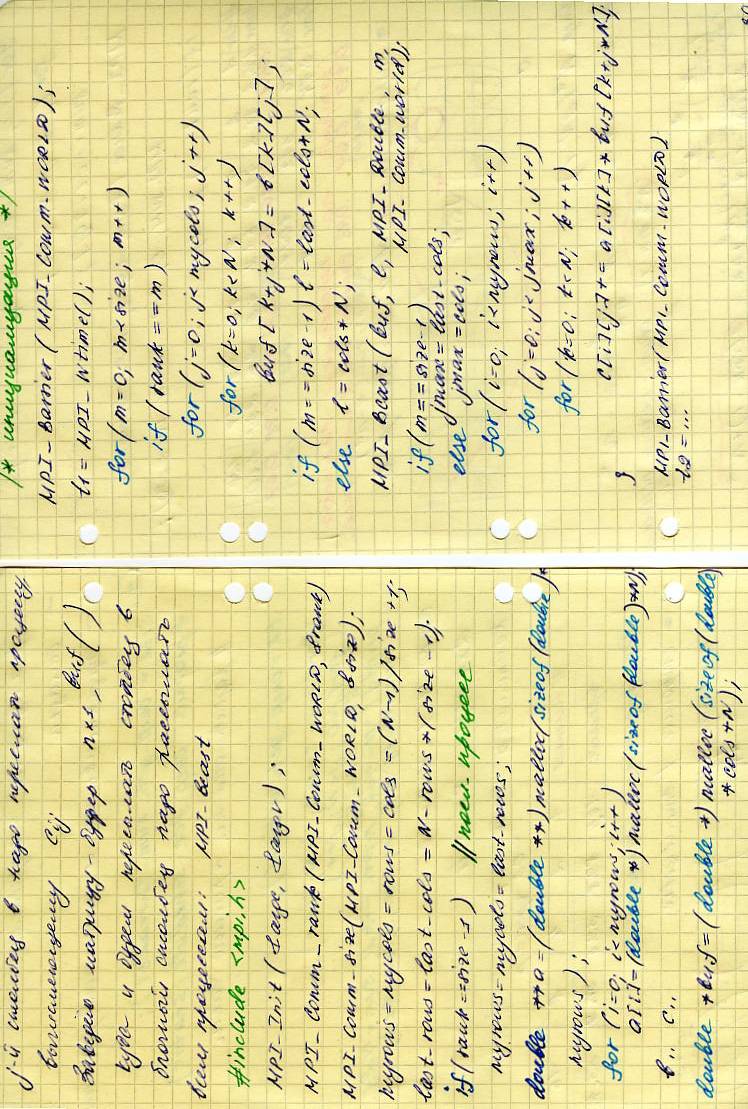 j-й столбец B надо переслать процессу,
вычисляющему Cij
Заведём матрицу-буфер n×s, buf ( )
куда и будем пересылать столбец B
блочный столбец надо рассылать
всем процессам: MPI_Bcast
#include <mpi.h>
MPI_Init(&argc, &argv);
MPI_Comm_rank(MPI_Comm_WORLD, &rank)
MPI_Comm_size(MPI_Comm_WORLD, &size);
myrows=mycols=rows=cols=(N-1)/size+1;
last_rows=last_cols=N-rows*(size-1);
if(rank==size-1) //посл. процесс
myrows=mycols=last_rows;
double **a=(double **)malloc(sizeof(double)*
myrows);
for (i=0; i<myrows; i++)
a[i]=(double *)malloc(sizeof(double)*N);
b.. c..
double *buf=(double *)malloc(sizeof(double)
*cols*N);
/* инициализация */
MPI_Barrier(MPI_Comm_WORLD);
t1=MPI_Wtime();
for(m=0; m<size; m++)
if (rank==m)
for(j=0; j<mycols; j++)
for(k=0; k<N; k++)
buf[k+j*N]=b[k][j];
if (m==size-1) l=last_cols*N;
else l=cols*N;
MPI_Bcast(buf, l, MPI_Double, m,
MPI_Comm_World);
if(m==size-1)
jmax=last_cols,
else jmax=cols;
for(i=0; i<myrows; i++)
for(j=0; j<jmax; j++)
for(k=0; k<N; k++)
c[i][j]+=a[i][k]*buf[k+j*N];
}
MPI_Barrier(MPI_Comm_WORLD)
t2=...